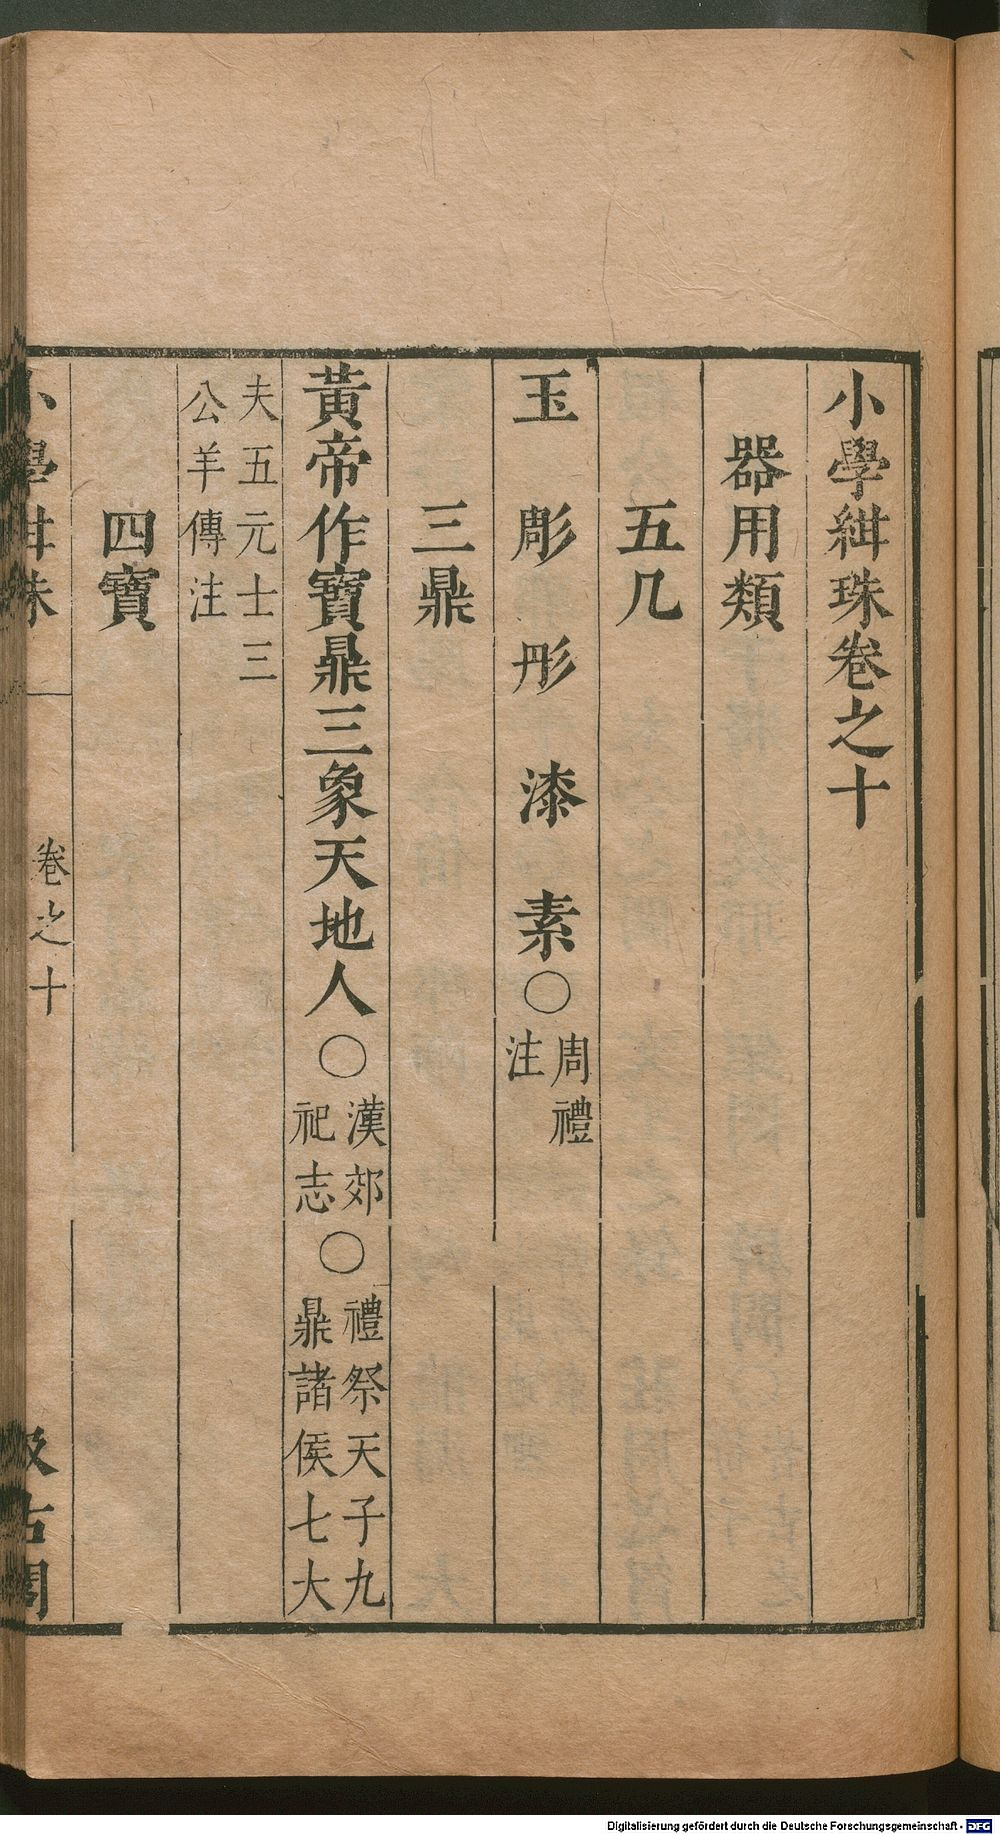 小學紺珠卷之十
器用類
五几
玉 彫 彤 漆 素○周禮注
三鼎
黃帝作寶鼎三象天地人○漢郊祀志○禮祭天子九鼎諸侯七大
夫五元士三公羊傳注
四寶
小學紺珠 卷之十 汲古閣
Digitalisierung gefördert durch die Deutsche Forschungsgemeinschaft - DFG